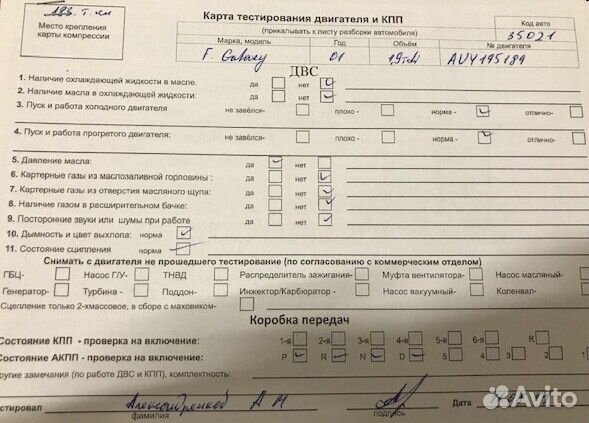 193 т км
Место крепления карты компрессии
Карта тестирования двигателя и КПП
(прикалывать к листу разборки автомобиля)
Код авто
35021
Марка, модель Год Объём № двигателя
F. Galaxy 01 1,9 tdi AUY195189
ДВС
1. Наличие охлаждающей жидкости в масле. да нет
2. Наличие масла в охлаждающей жидкости: да нет
3. Пуск и работа холодного двигателя не завёлся- плохо - норма - отлично-
4. Пуск и работа прогретого двигателя: не завёлся- плохо - норма - отлично-
5. Давление масла: да нет
6. Картерные газы из маслозаливной горловины : да нет
7. Картерные газы из отверстия масляного щупа: да нет
8. Наличие газом в расширительном бачке: да нет
9. Посторонние звуки или шумы при работе да нет
10. Дымность и цвет выхлопа: норма
11. Состояние сципления норма
Снимать с двигателя не прошедшего тестирование (по согласованию с коммерческим отделом)
ГБЦ- Насос Г/У- ТНВД Распределитель зажигания- Муфта вентилятора- Насос масляный-
Генератор- Турбина - Поддон- Инжектор/Карбюратор - Насос вакуумный- Коленвал-
Сцепление только 2-хмассовое, в сборе с маховиком-
Коробка передач
Состояние КПП - проверка на включение: 1-я 2-я 3-я 4-я 5-я 6-я R
Состояние АКПП - проверка на включение: P R N D 5 4 3 2
другие замечания (по работе ДВС и КПП), комплектность:
тестировал Александренков А М Дата
фамилия подпись
Avito